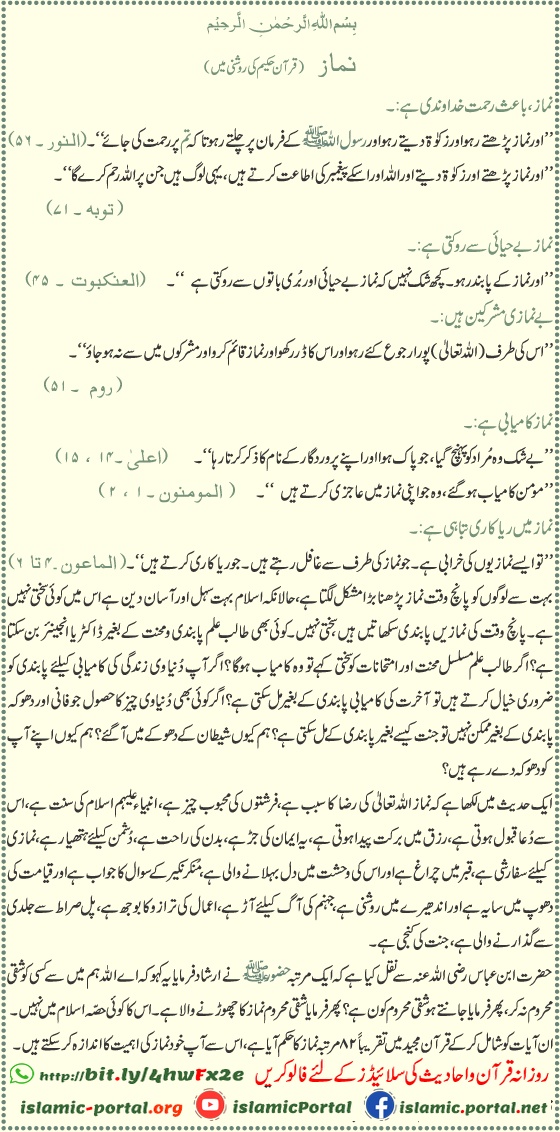 بِسْمِ اللّٰہِ الرَّحْمٰنِ الرَّحِیْمِ
نماز (قرآن حکیم کی روشنی میں)
نماز، باعث رحمت خداوندی ہے:۔
’’اور نماز پڑھتے رہو اور زکوٰۃ دیتے رہو اور رسول اللہﷺ کے فرمان پر چلتے رہو تاکہ تم پر رحمت کی جائے‘‘۔ (النور ۔ ۵۶)
’’اور نماز پڑھتے اور زکوٰۃ دیتے اور اللہ اور اسکے پیغمبر کی اطاعت کرتے ہیں، یہی لوگ ہیں جن پر اللہ رحم کرے گا‘‘۔
(توبه ۔ ۷۱)
نماز بے حیائی سے روکتی ہے:۔
’’اور نماز کے پابند رہو۔ کچھ شک نہیں کہ نماز بے حیائی اور بُری باتوں سے روکتی ہے ‘‘۔ (العنكبوت ۔ ۴۵)
بے نمازی مشرکین ہیں:۔
’’اس کی طرف (اللہ تعالیٰ) پورا رجوع کئے رہو اور اس کا ڈر رکھو اور نماز قائم کرو اور مشرکوں میں سے نہ ہو جاؤ‘‘۔
(روم ۔ ۵۱)
نماز کامیابی ہے:۔
’’بے شک وہ مُراد کو پہنچ گیا، جو پاک ہوا اور اپنے پروردگار کے نام کا ذکر کرتا رہا‘‘۔ (اعلیٰ ۔۱۴ ، ۱۵)
’’مؤمن کامیاب ہو گئے، وہ جو اپنی نماز میں عاجزی کرتے ہیں ‘‘۔ (المومنون ۔ ۱ ، ۲)
نماز میں ریاکاری تباہی ہے:۔
’’تو ایسے نمازیوں کی خرابی ہے۔ جو نماز کی طرف سے غافل رہتے ہیں۔ جو ریاکاری کرتے ہیں‘‘۔ (الماعون ۔۴ تا ۶)
بہت سے لوگوں کو پانچ وقت نماز پڑھنا بڑا مشکل لگتا ہے، حالانکہ اسلام بہت سہل اور آسان دین ہے اس میں کوئی سختی نہیں
ہے۔ پانچ وقت کی نمازیں پابندی سکھاتیں ہیں سختی نہیں۔ کوئی بھی طالب علم پابندی و محنت کے بغیر ڈاکٹر یا انجینئر بن سکتا
ہے؟ اگر طالب علم مسلسل محنت اور امتحانات کو سختی کہے تو وہ کامیاب ہوگا؟ اگر آپ دُنیاوی زندگی کی کامیابی کیلئے پابندی کو
ضروری خیال کرتے ہیں تو آخرت کی کامیابی پابندی کے بغیر مل سکتی ہے؟ اگر کوئی بھی دُنیاوی چیز کا حصول جو فانی اور دھوکہ ہے
پابندی کے بغیر ممکن نہیں تو جنت کیسے بغیر پابندی کے مل سکتی ہے؟ ہم کیوں شیطان کے دھوکے میں آ گئے؟ ہم کیوں اپنے آپ
کو دھوکہ دے رہے ہیں؟
ایک حدیث میں لکھا ہے کہ نماز اللہ تعالیٰ کی رضا کا سبب ہے، فرشتوں کی محبوب چیز ہے، انبیاء علیہم السلام کی سنت ہے، اس
سے دُعا قبول ہوتی ہے، رزق میں برکت پیدا ہوتی ہے، یہ ایمان کی جڑ ہے، بدن کی راحت ہے، دُشمن کیلئے ہتھیار ہے، نمازی
کیلئے سفارشی ہے، قبر میں چراغ ہے اور اس کی وحشت میں دل بہلانے والی ہے، مُنکَر نکیر کے سوال کا جواب ہے اور قیامت کی
دھوپ میں سایہ ہے اور اندھیرے میں روشنی ہے، جہنم کی آگ کیلئے آڑ ہے، اعمال کی ترازو کا بوجھ ہے، پل صراط سے جلدی
سے گذارنے والی ہے، جنت کی کنجی ہے۔
حضرت ابن عباس رضی اللہ عنہ سے نقل کیا ہے کہ ایک مرتبہ حضورﷺ نے ارشاد فرمایا یہ کہو کہ اے اللہ ہم میں سے کسی کو شقی
محروم نہ کر، پھر فرمایا جانتے ہو شقی محروم کون ہے؟ پھر فرمایا شقی محروم نماز کا چھوڑنے والا ہے۔ اس کا کوئی حصّہ اسلام میں نہیں۔
ان آیات کو شامل کر کے قرآن مجید میں تقریباً ۸۲ مرتبہ نماز کا حکم آیا ہے، اس سے آپ خود نماز کی اہمیت کا اندازہ کر سکتے ہیں۔
روزانہ قرآن و احادیث کی سلائیڈز کے لئے فالو کریں http://bit.ly/4hwFx2e
islamic-portal.org islamicPortal islamic-portal.net